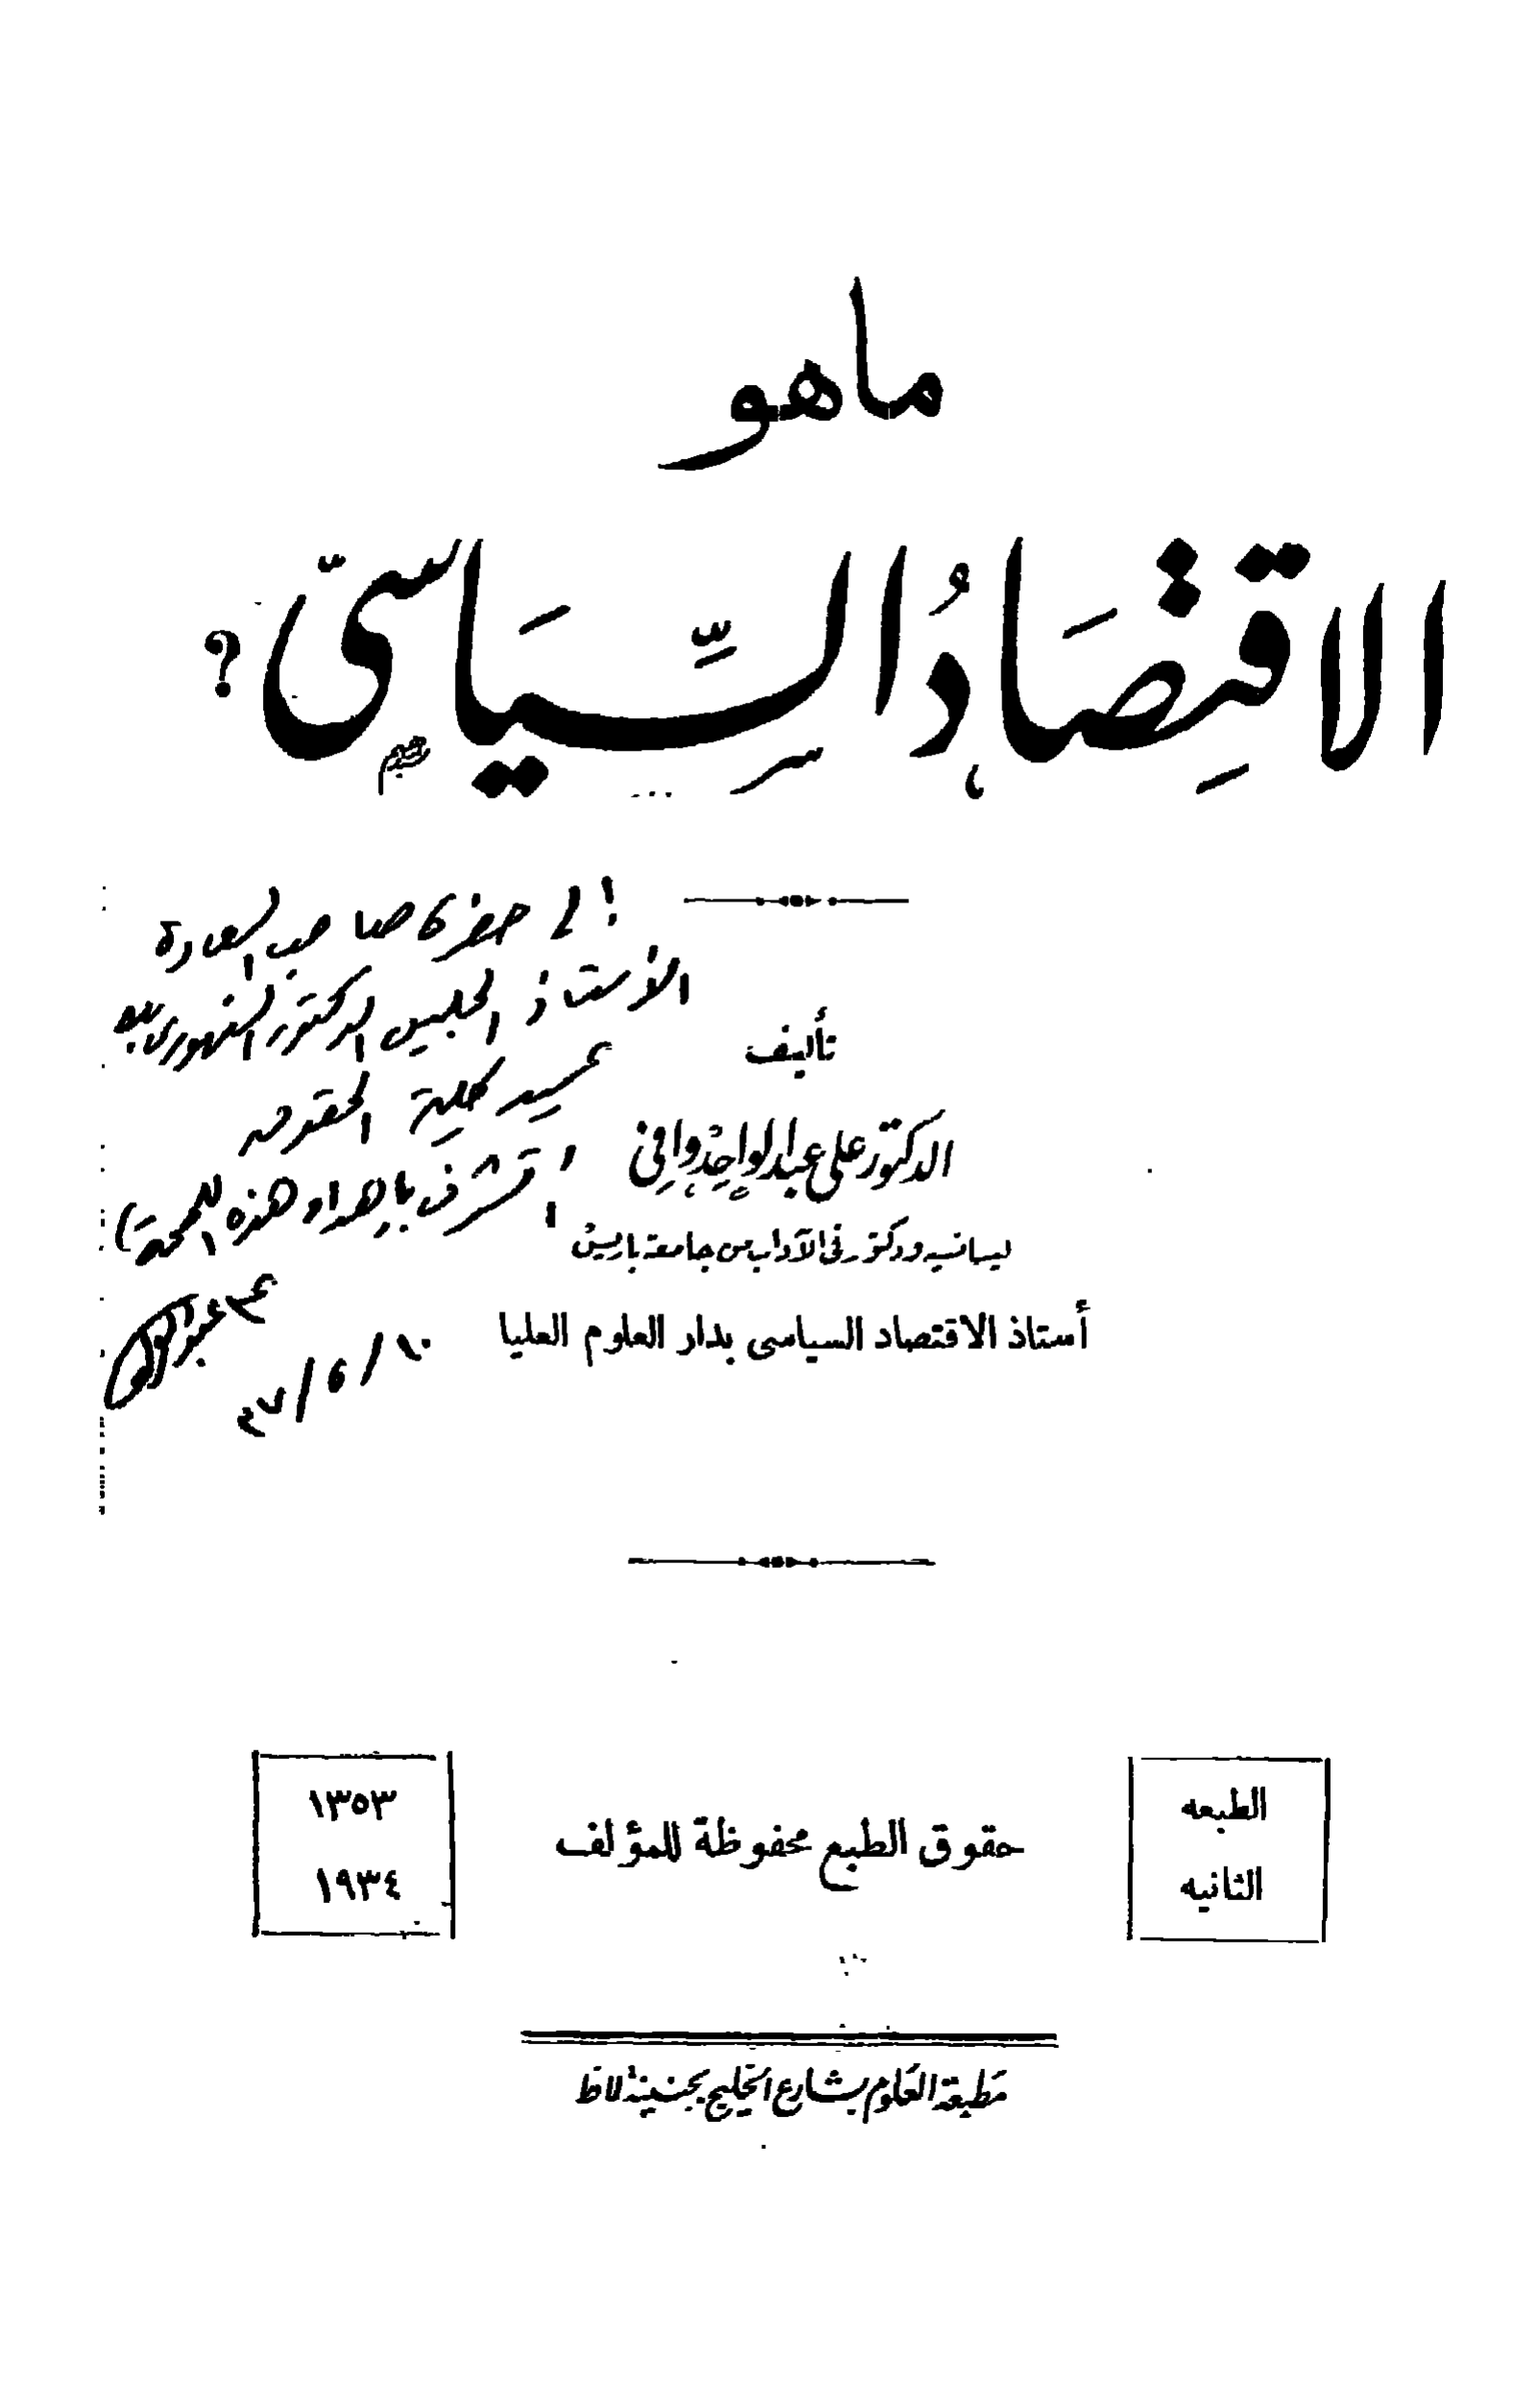 ما هو
الاقتِصَادُ السِّيَاسىّ ؟
إلى حضرة صاحب السعادة
الأستاذ الجليل الدكتور السنهوري بك
عميد كلية الحقوق
أتشرف بإهداء هذه
تأليف
الدكتور على عبد الواحد وافى
ليسانسيه ودكتور فى الآداب من جامعة باريس
أستاذ الاقتصاد السياسى بدار العلوم العليا
الطبعه
الثانيه
حقوق الطبع محفوظة للمؤلف
١٣٥٣
١٩٣٤
مطبعة العلوم بشارع الخليج بجنينة لاظ